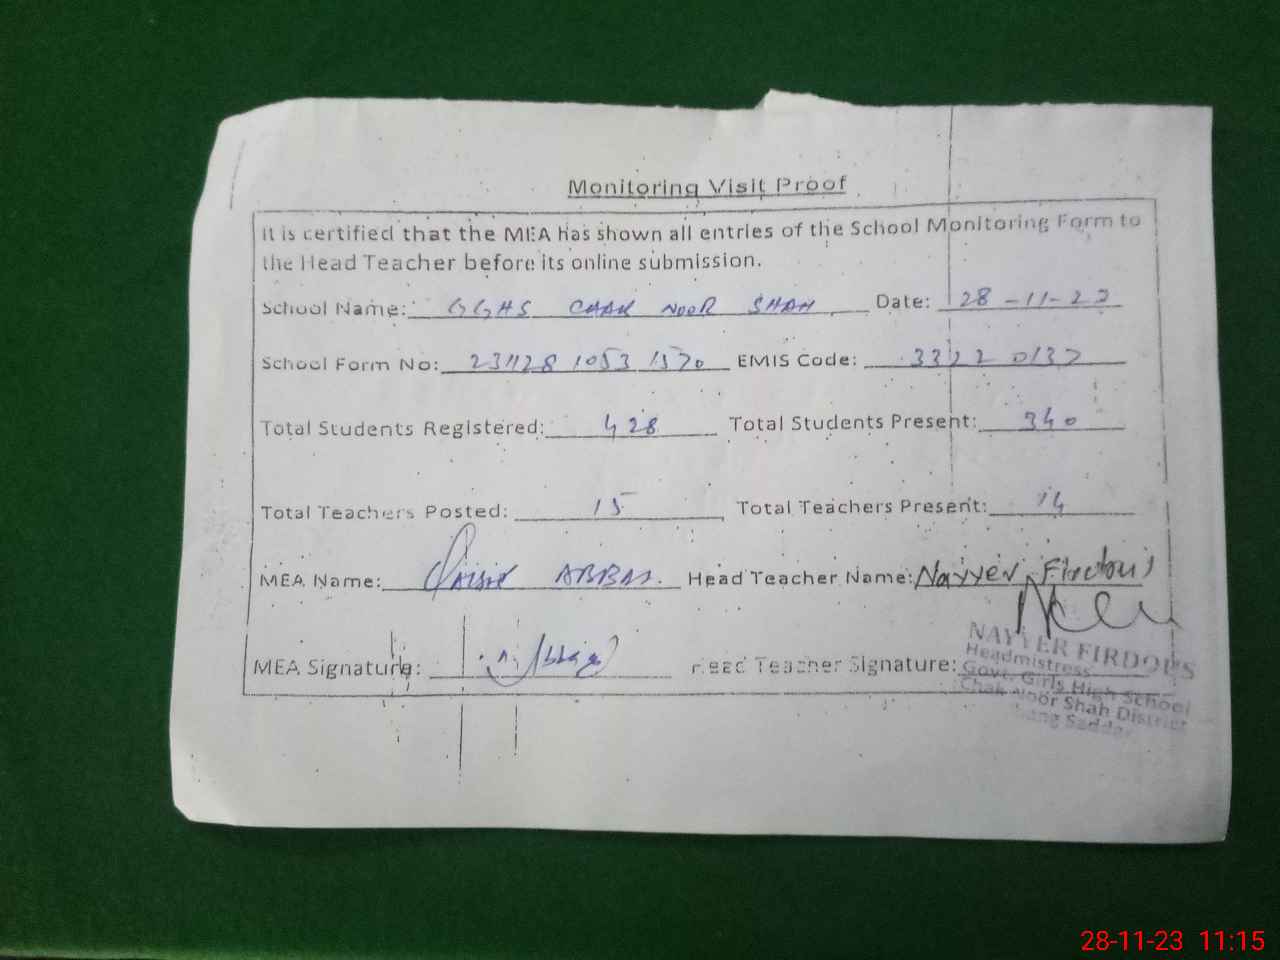 Monitoring Visit Proof
It is certified that the MEA has shown all entries of the School Monitoring Form to
the Head Teacher before its online submission.
School Name: GGHS CHAK NOOR SHAH Date: 28-11-23
School Form No: 231128 1053 1570 EMIS Code: 3322 0137
Total Students Registered: 428 Total Students Present: 340
Total Teachers Posted: 15 Total Teachers Present: 14
MEA Name: ABBAS. Head Teacher Name: Nayyer Firdous
MEA Signature: Head Teacher Signature:
NAYYER FIRDOUS
Headmistress
Govt. Girls High School
Chak Noor Shah District
Jhang Saddar
28-11-23 11:15